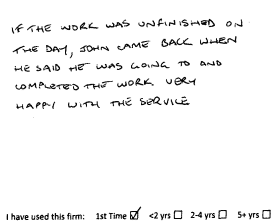 IF THE WORK WAS UNFINISHED ON
THE DAY, JOHN CAME BACK WHEN
HE SAID HE WAS GOING TO AND
COMPLETED THE WORK VERY
HAPPY WITH THE SERVICE
I have used this firm: 1st Time ☑ <2 yrs ☐ 2-4 yrs ☐ 5+ yrs ☐